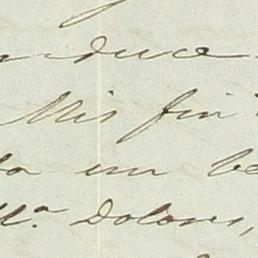 duce
Mis fin
la un be
Mª. Dolores,